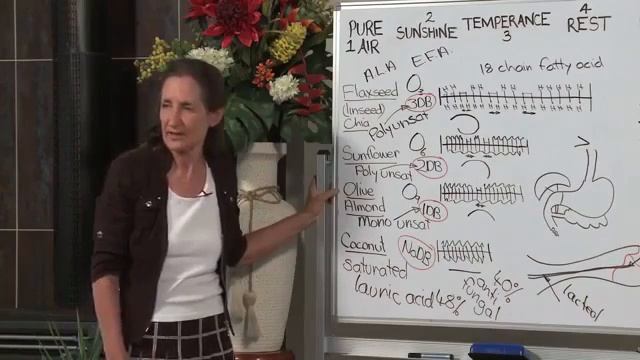 PURE 1 AIR
2 SUNSHINE
TEMPERANCE 3
4 REST
A.L.A E.F.A.
18 chain fatty acid
Flaxseed O3
(linseed) 3DB
Chia Polyunsat
Sunflower O6
Polyunsat 2DB
Olive O9
Almond 1DB
Mono unsat
Coconut NoDB
saturated
lauric acid 48%
anti fungal
lacteal